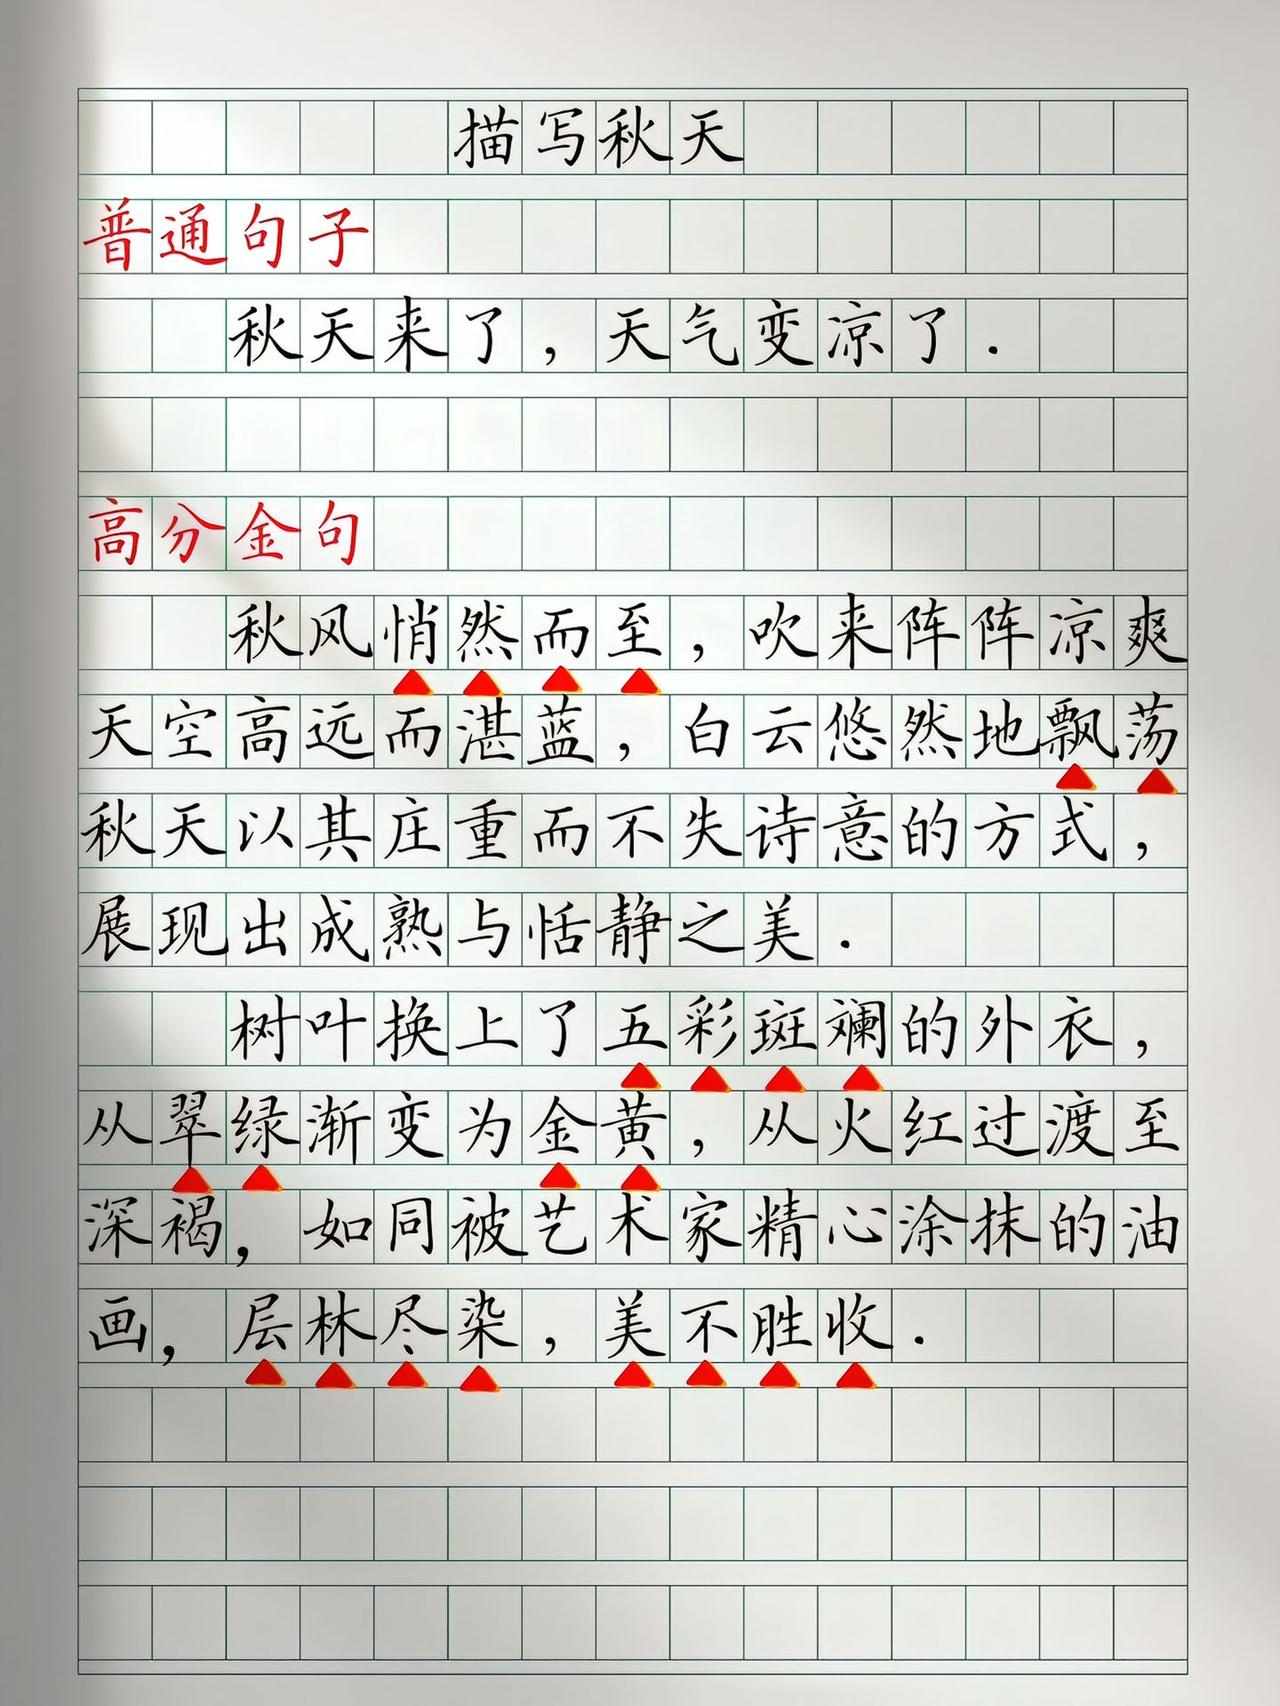 描写秋天
普通句子
秋天来了，天气变凉了.
高分金句
秋风悄然而至，吹来阵阵凉爽
天空高远而湛蓝，白云悠然地飘荡
秋天以其庄重而不失诗意的方式，
展现出成熟与恬静之美.
树叶换上了五彩斑斓的外衣，
从翠绿渐变为金黄，从火红过渡至
深褐，如同被艺术家精心涂抹的油
画，层林尽染，美不胜收.